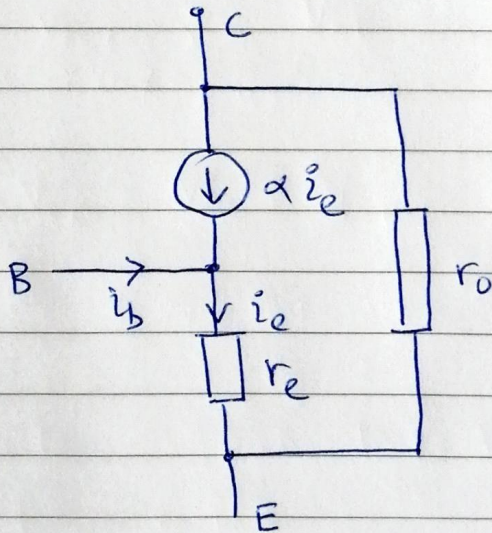 C
α i_e
B
i_b
i_e
r_e
r_o
E